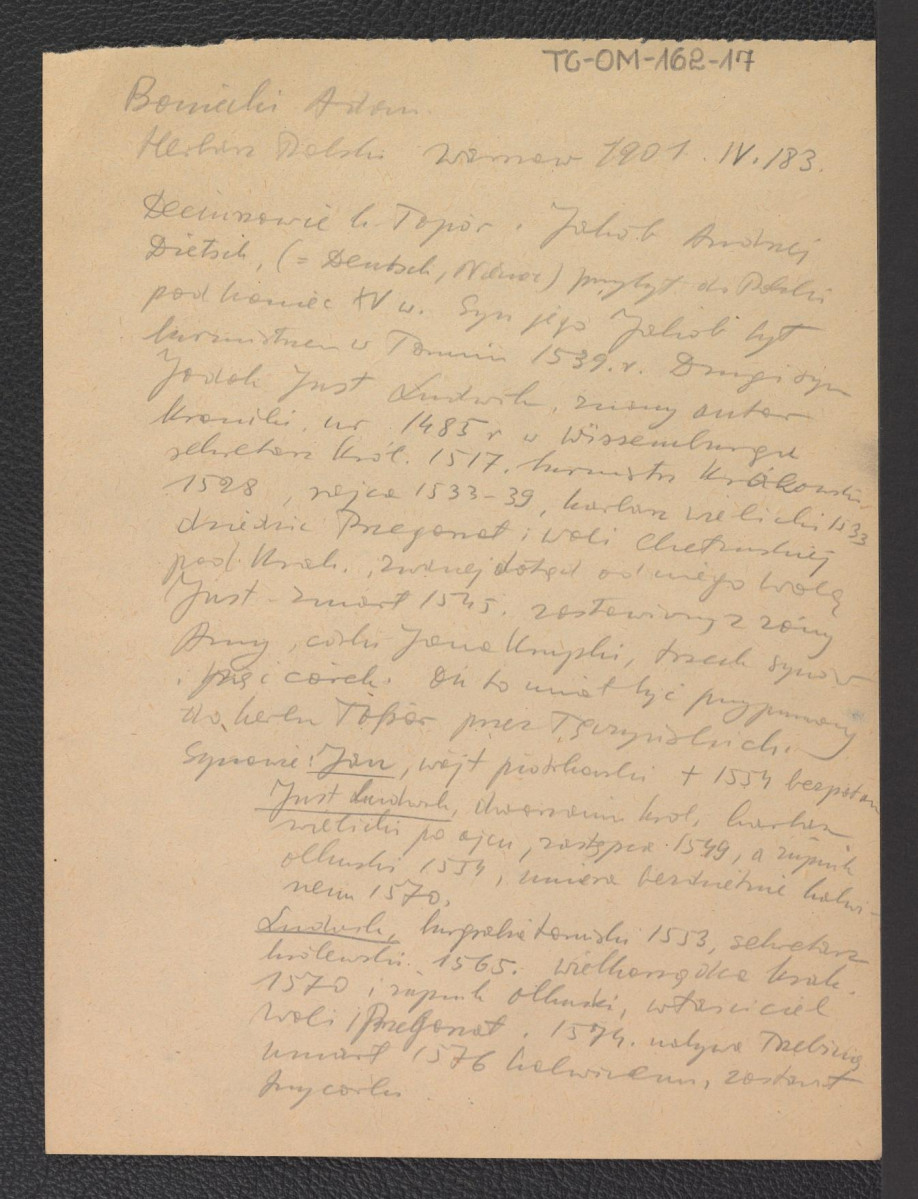 TG-OM-162-17
Boniecki Adam
Herbarz Polski Warszaw 1901. IV. 183.
Decjuszowie h. Topór. Jakób Andrzej
Dietsch, (= Deutsch, Niemiec) przybył do Polski
pod koniec XV w. Syn jego Jakób był
burmistrzem w Toruniu 1539. r. Drugi syn
Jodok Just Ludwik, znany autor
kroniki, ur. 1485 r w Wissemburgu
sekretarz król. 1517. burmistrz krakowski
1528, rajca 1533-39, karbarz wielicki 1533
dziedzic Przegorzał i woli Chełmskiej
pod Krak. , zwanej dotąd od niego Wolą
Just - zmarł 1545. zostawiwszy z żony
Anny, córki Jana Krupki, trzech synów
i pięć córek. On to miał być przypuszczony
do herbu Topór przez Tęczyńskich.
Synowie: Jan, wójt piotrkowski + 1554 bezpotom
Just Ludwik, dworzanin król. karbarz
wielicki po ojcu, zastępca 1549, a żupnik
olkuski 1554, umiera bezdzietnie kalwi-
nem 1570.
Ludwik, burgrabia toruński 1553, sekretarz
królewski 1565. wielkorządca krak.
1570 i żupnik olkuski, właściciel
Woli i Przegorzał. 1574. nabywa Trzebinię
umarł 1576 kalwinem, zostawił
trzy córki